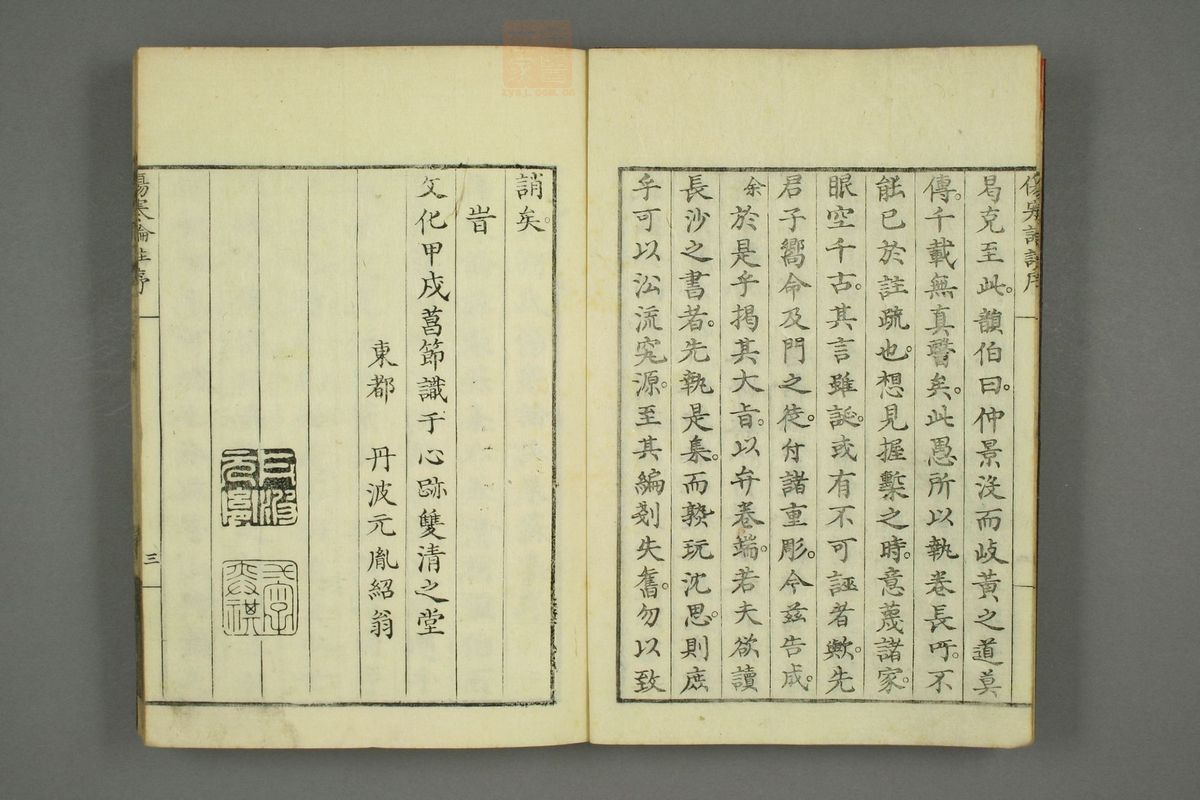 曷克至此。韻伯曰。仲景没而岐黄之道莫
傳。千載無真醫矣。此愚所以執卷長吁。不
能已於註疏也。想見握槧之時。意蔑諸家。
眼空千古。其言雖誕。或有不可誣者歟。先
君子嚮命及門之徒。付諸重彫。今茲告成。
余於是乎揭其大旨。以弁卷端。若夫欲讀
長沙之書者。先執是集。而熟玩沈思。則庶
乎可以㳂流究源。至其編剗失舊。勿以致
誚矣。
旹
文化甲戌菖節識于心跡雙清之堂
東都 丹波元胤紹翁
傷寒論註序
三
zysj.com.cn